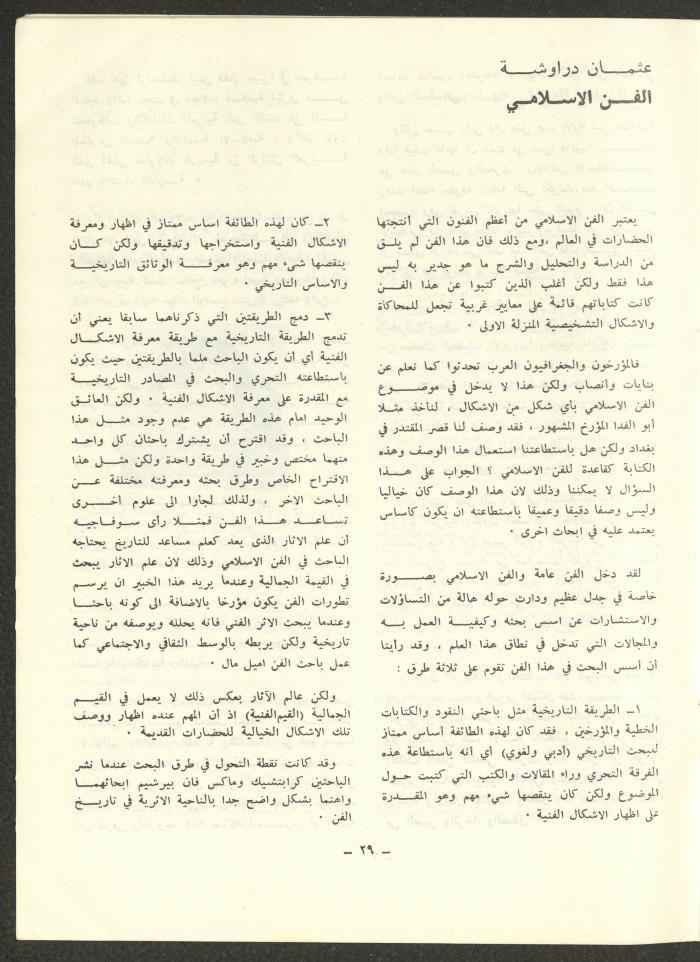 عثمـــان دراوشـــة
الفـــن الاسـلامي
يعتبر الفن الاسلامي من أعظم الفنون التي أنتجتها
الحضارات في العالم ،ومع ذلك فان هذا الفن لم يلــق
من الدراسة والتحليل والشرح ما هو جدير به ليس
هذا فقط ولكن أغلب الذين كتبوا عن هذا الفـــن
كانت كتاباتهم قائمة على معايير غربية تجعل للمحاكاة
والاشكال التشخيصية المنزلة الاولى ٠
فالمؤرخون والجغرافيون العرب تحدثوا كما نعلم عن
بنايات وأنصاب ولكن هذا لا يدخل في موضـــوع
الفن الاسلامي بأي شكل من الاشكال ، لنأخذ مثــلا
أبو الفدا المؤرخ المشهور ، فقد وصف لنا قصر المقتدر في
بغداد ولكن هل باستطاعتنا استعمال هذا الوصف وهذه
الكتابة كقاعدة للفن الاسلامي ؟ الجواب على هـــذا
السؤال لا يمكننا وذلك لان هذا الوصف كان خياليا
وليس وصفا دقيقا وعميقا باستطاعته ان يكون كأساس
يعتمد عليه في ابحاث اخرى ٠
لقد دخل الفن عامة والفن الاسلامي بصـــورة
خاصة في جدل عظيم ودارت حوله هالة من التساؤلات
والاستشارات عن اسس بحثه وكيفيـــة العمل بـــه
والمجالات التي تدخل في نطاق هذا العلم ، وقد رأينا
أن أسس البحث في هذا الفن تقوم على ثلاثة طرق :
١ـ الطريقة التاريخية مثل باحثي النقود والكتابات
الخطية والمؤرخين ، فقد كان لهذه الطائفة أساس ممتاز
للبحث التاريخي (أدبي ولغوي) أي أنه باستطاعة هذه
الفرقة التحري وراء المقالات والكتب التي كتبت حــول
الموضوع ولكن كان ينقصها شيء مهم وهو المقـــدرة
على اظهار الاشكال الفنية ٠
٢ـ كان لهذه الطائفة اساس ممتاز في اظهار ومعرفة
الاشكال الفنية واستخراجها وتدقيقها ولكن كـــان
ينقصها شيء مهم وهو معرفـــة الوثائق التاريخيـــة
والاساس التاريخي ٠
٣ـ دمج الطريقتين التي ذكرناهما سابقا يعني أن
تدمج الطريقة التاريخية مع طريقة معرفة الاشكــال
الفنية أي أن يكون الباحث ملما بالطريقتين حيث يكون
باستطاعته التحري والبحث في المصادر التاريخيـــة
مع المقدرة على معرفة الاشكال الفنية ٠ ولكن العائــق
الوحيد امام هذه الطريقة هي عدم وجود مثـــل هذا
الباحث ، وقد اقترح أن يشترك باحثان كل واحــد
منهما مختص وخبير في طريقة واحدة ولكن مثـــل هذا
الاقتراح الخاص وطرق بحثه ومعرفته مختلفة عـــن
الباحث الاخر ، ولذلك لجأوا الى علوم أخـــرى
تساعـــد هـــذا الفـن فمثـــلا رأى سـوفـاجيـه
أن علم الاثار الذي يعد كعلم مساعد للتاريخ يحتاجه
الباحث في الفن الاسلامي وذلك لان علم الاثار يبحث
في القيمة الجمالية وعندما يريد هذا الخبير ان يرســم
تطورات الفن يكون مؤرخا بالاضافة الى كونه باحثــا
وعندما يبحث الاثر الفني فانه يحلله ويوصفه من ناحية
تاريخية ولكن يربطه بالوسط الثقافي والاجتماعي كما
عمل باحث الفن اميل مال ٠
ولكن عالم الآثار بعكس ذلك لا يعمل في القيـــم
الجمالية (القيم‌الفنية) اذ أن المهم عنده اظهار ووصف
تلك الاشكال الخيالية للحضارات القديمة ٠
وقد كانت نقطة التحول في طرق البحث عندما نشر
الباحثين كرابتشيك وماكس فان بيرشيم إبحاثهمـــا
واهتما بشكل واضح جدا بالناحية الاثرية في تاريــخ
الفن ٠
ـ ٢٩ ـ